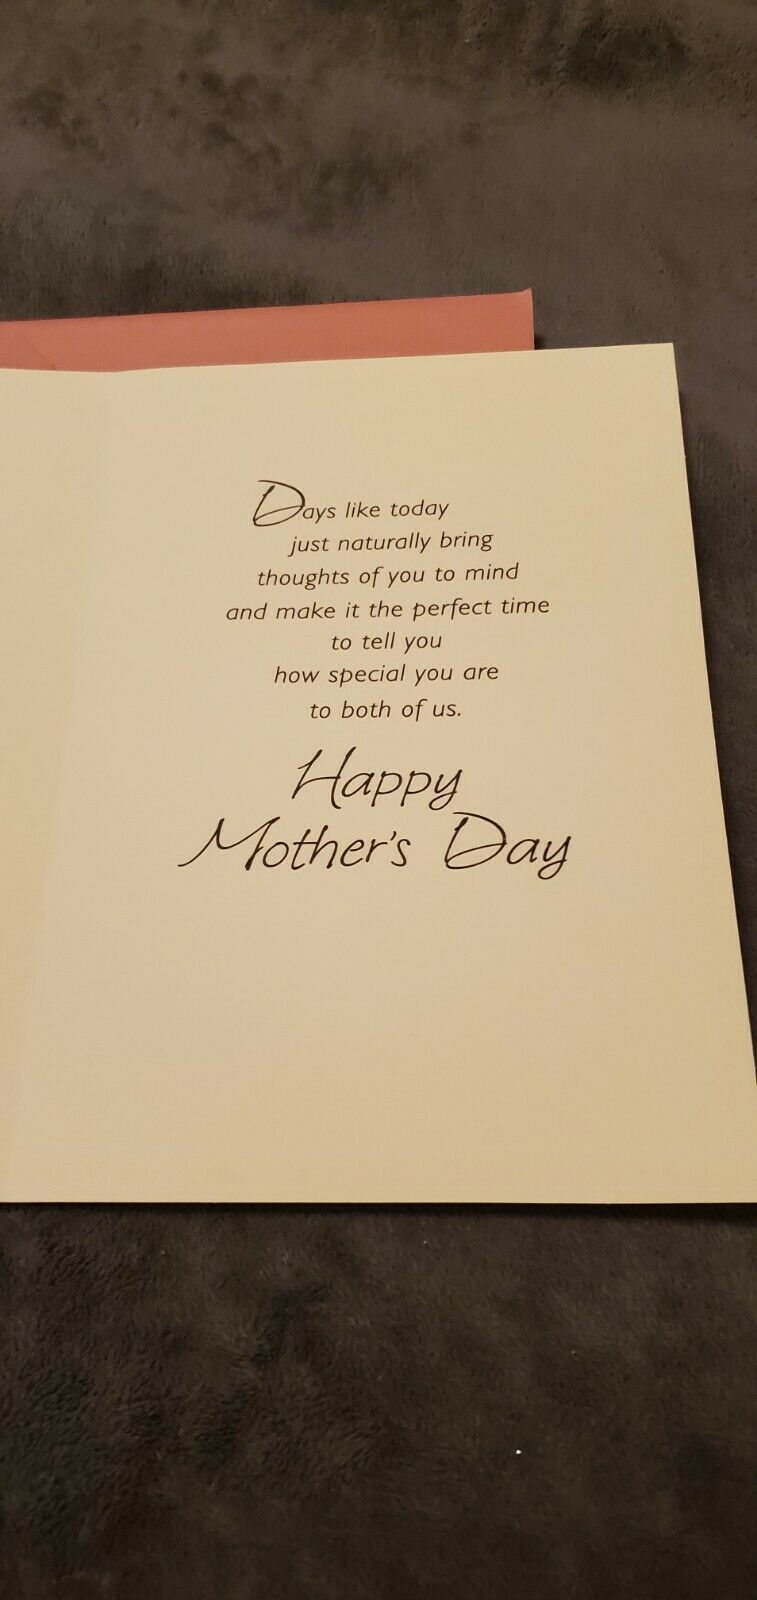 Days like today
just naturally bring
thoughts of you to mind
and make it the perfect time
to tell you
how special you are
to both of us.
Happy
Mother's Day